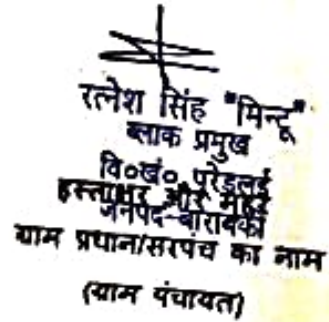 रत्नेश सिंह "मिन्टू"
ब्लाक प्रमुख
वि०खं० पूरेडलई
हस्ताक्षर और मोहर
जनपद-बाराबंकी
ग्राम प्रधान/सरपंच का नाम
(ग्राम पंचायत)